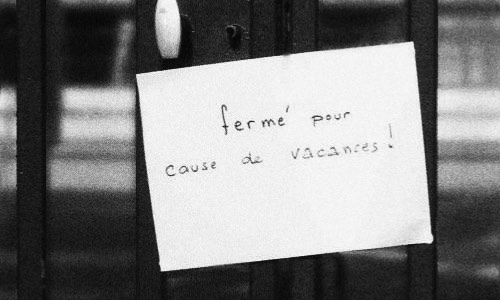 fermé pour
cause de vacances!